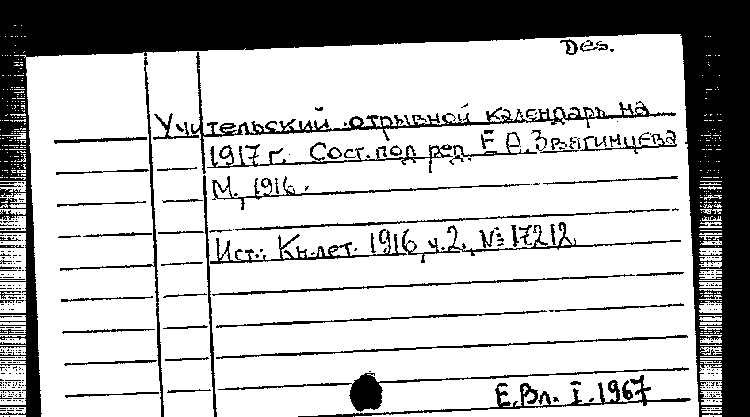 Des.
Учительский отрывной календарь на
1917 г. Сост. под ред. Е. А. Звягинцева
М., 1916.
Ист.: Кн. лет. 1916, ч. 2., № 17212
Е. Вл. I. 1967